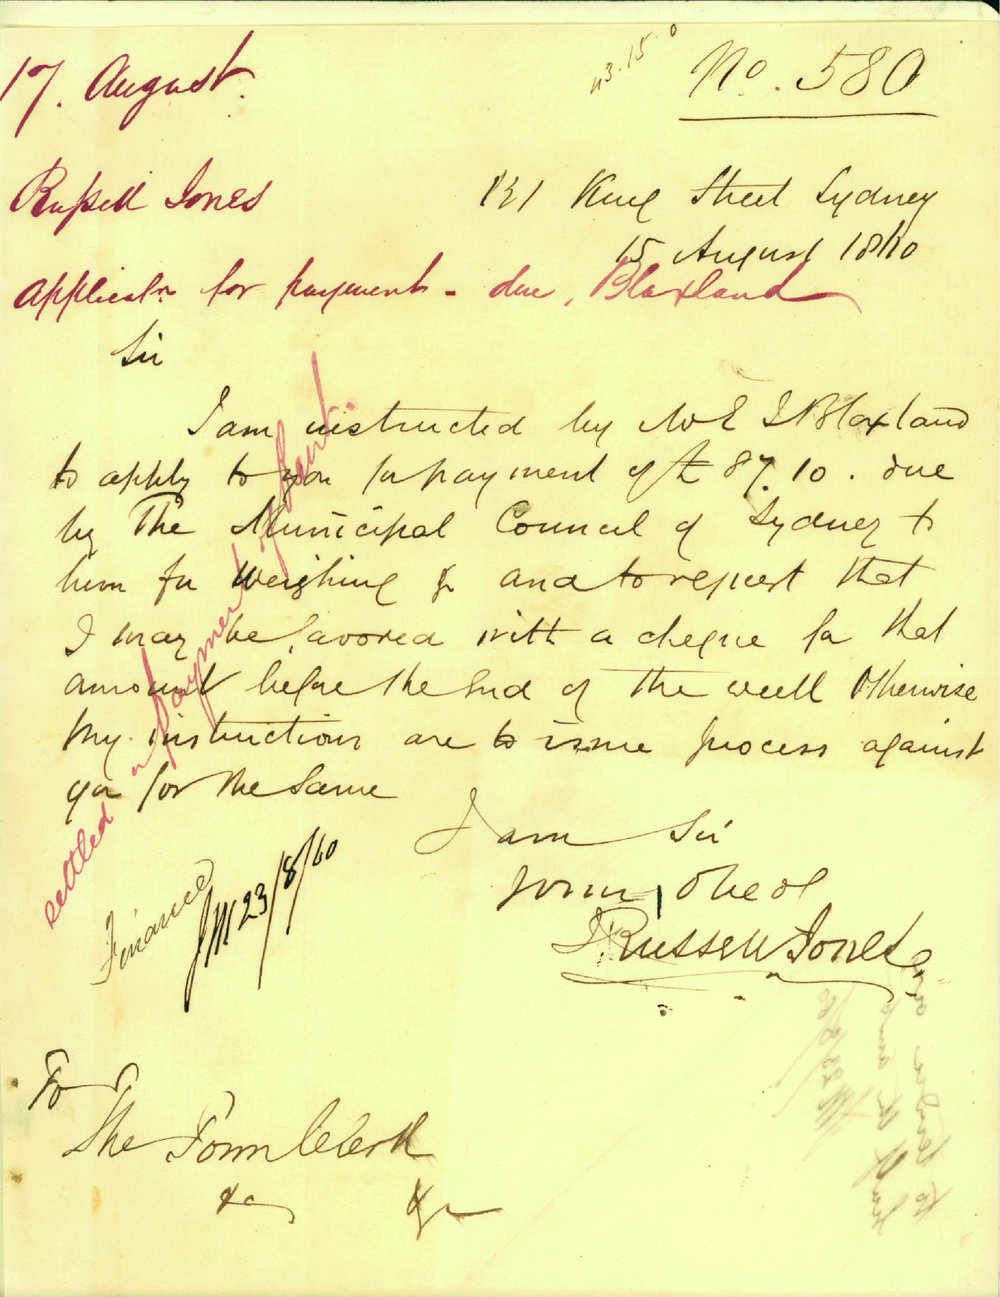 17. August.
43.15.0
No. 580
Russell Jones
131 King Street Sydney
15 August 1860
Applicatn for payment - due, Blaxland
Sir
I am instructed by Mr E J Blaxland
to apply to you for payment of £87.10. due
by The Municipal Council of Sydney to
him for Weighing &c and to request that
I may be favored with a cheque for that
amount before the End of the week Otherwise
my instructions are to issue process against
you for the same
settled on payment of
I am Sir
your Obed
J Russell Jones
Finance
JM 23/8/60
To
The Town Clerk
&c &c